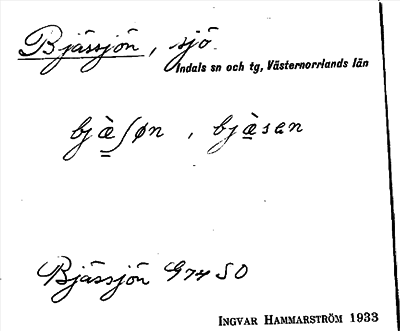 Bjässjön, sjö.
Indals sn och tg, Västernorrlands län
bjä̀ʃøn , bjä̀sen
Bjässjön G74 SO
INGVAR HAMMARSTRÖM 1933